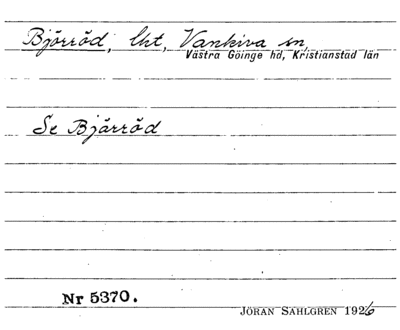 Björröd, lht, Vankiva sn,
Västra Göinge hd, Kristianstad län
Se Bjärröd
Nr 5370.
JÖRAN SAHLGREN 1926